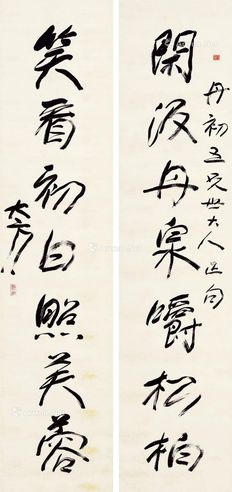 丹初五兄世大人正句
閑汲丹泉嚼松柏
笑看初日照芙蓉